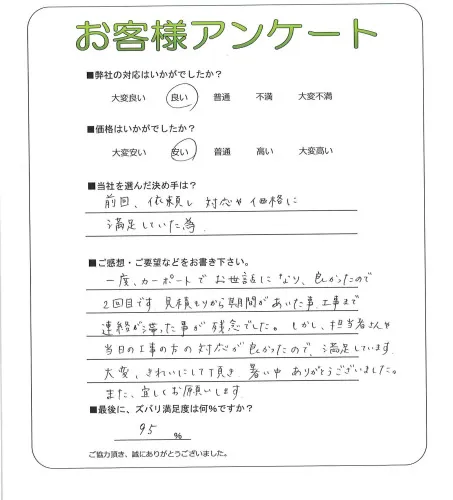 お客様アンケート
■弊社の対応はいかがでしたか？
大変良い 良い 普通 不満 大変不満
■価格はいかがでしたか？
大変安い 安い 普通 高い 大変高い
■当社を選んだ決め手は？
前回、依頼し 対応や価格に
満足していた為
■ご感想・ご要望などをお書き下さい。
一度、カーポートでお世話になり、良かったので
2回目です。見積もりから期間があいた事、工事まで
連絡が滞った事が残念でした。しかし、担当者さんや
当日の工事の方の対応が良かったので、満足しています。
大変、きれいにして頂き 暑い中ありがとうございました。
また、宜しくお願いします。
■最後に、ズバリ満足度は何%ですか？
95 %
ご協力頂き、誠にありがとうございました。